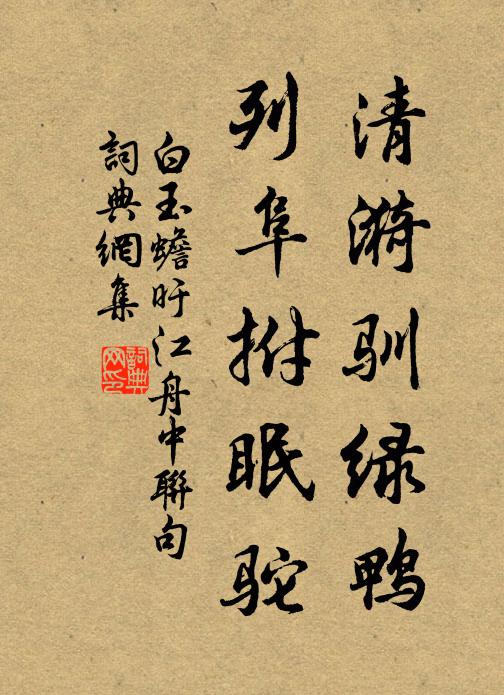 清漪驯绿鸭
列阜拊眠驼
白玉蟾旴江舟中聯句
詞典網集
詞典网印